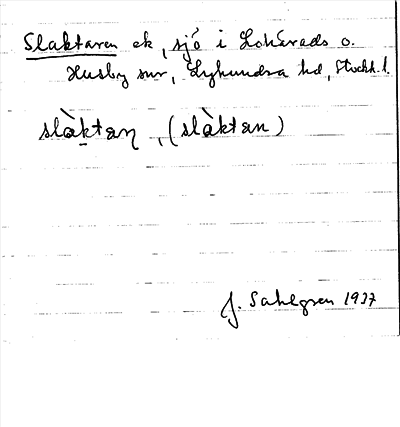 Slaktaren ek, sjö i Lohärads o.
Husby snr, Lyhundra hd, Stockh. l.
slàktaṇ, (slàktan)
J. Sahlgren 1937